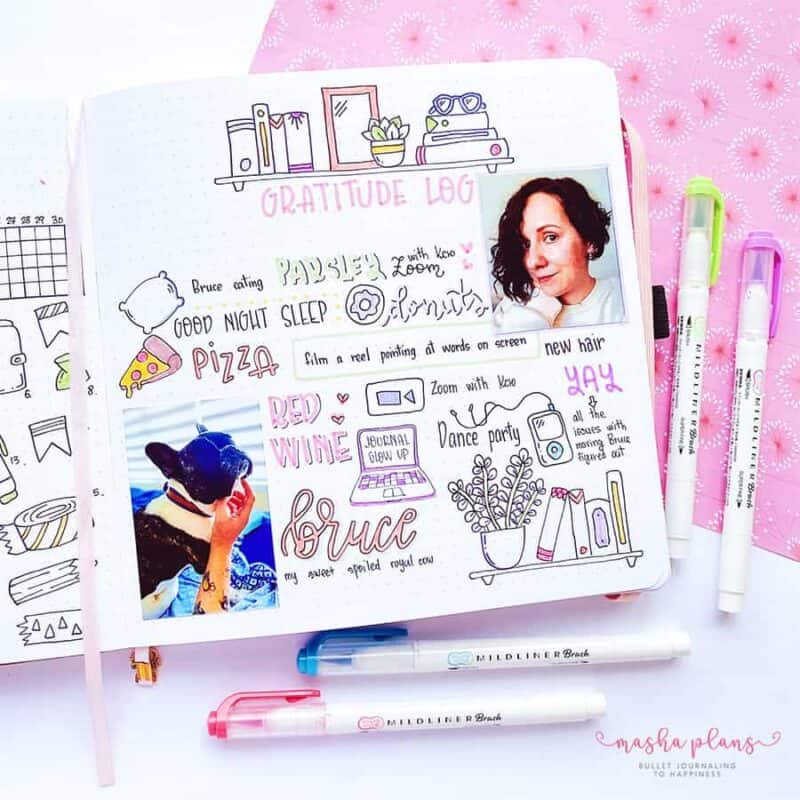 GRATITUDE LOG
27 28 29 30
Bruce eating PARSLEY with Kcio Zoom
GOOD NIGHT SLEEP donuts
PIZZA film a reel pointing at words on screen new hair
YAY
RED WINE
Zoom with Kcio
JOURNAL GLOW UP
Dance party
all the
issues with
moving Bruce
figured out
bruce
my sweet spoiled royal cow
8.
13.
15.
MILDLINER Brush
MILDLINER Brush
MILDLINER Brush
MILDLINER Brush
masha plans
BULLET JOURNALING
TO HAPPINESS